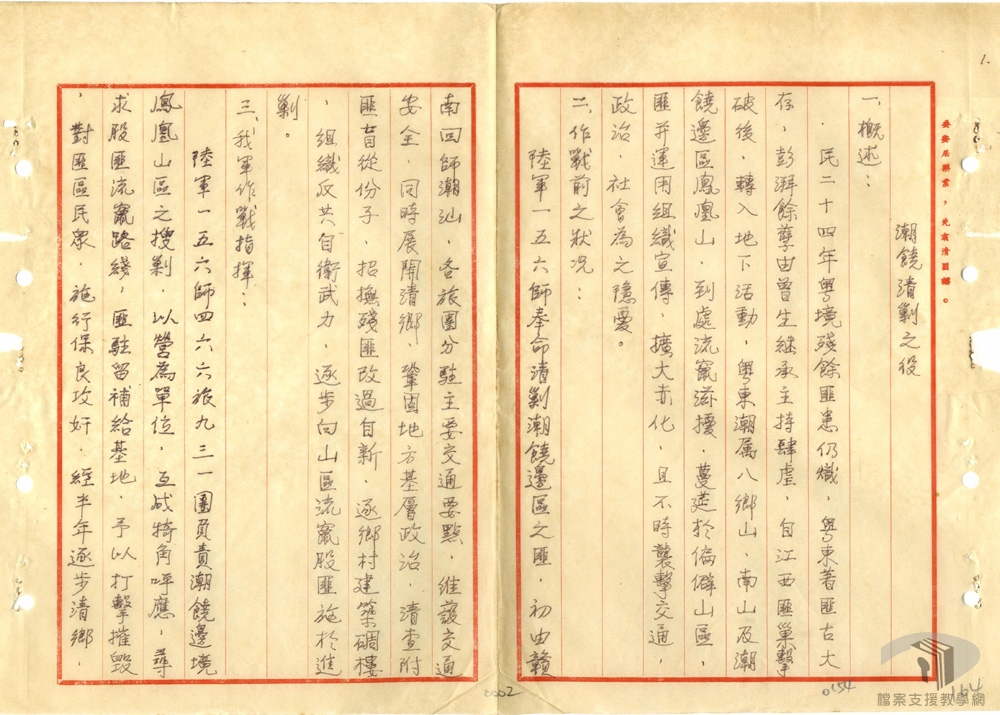 1.
要安居樂業，先肅清匪諜。
潮饒清剿之役
一、概述：
民二十四年粵境殘餘匪患仍熾，粵東著匪古大
存，彭湃餘孽由曾生継承主持肆虐，自江西匪巢擊
破後，轉入地下活動，粵東潮属八鄉山、南山及潮
饒邊區鳳凰山，到處流竄滋擾，蔓延於偏僻山區，
匪并運用組織宣傳，擴大赤化，且不時襲擊交通，
政治，社會為之隱憂。
二、作戰前之狀况：
陸軍一五六師奉命清剿潮饒邊區之匪，初由贛
南回師潮汕，各旅團分駐主要交通要點，維護交通
安全，同時展開清鄉，鞏固地方基層政治，清查附
匪盲從份子，招撫殘匪改過自新，逐鄉村建築碉樓
，組織反共自衛武力，逐步向山區流竄股匪施於進
剿。
三、我軍作戰指揮：
陸軍一五六師四六六旅九三一團負責潮饒邊境
鳳凰山區之搜剿，以營為單位，互成犄角呼應，尋
求股匪流竄路綫，匪駐留補給基地，予以打擊摧毀
，對匪區民衆，施行保良攻奸，經半年逐步清鄉，
0002
0154
164
檔案支援教學網